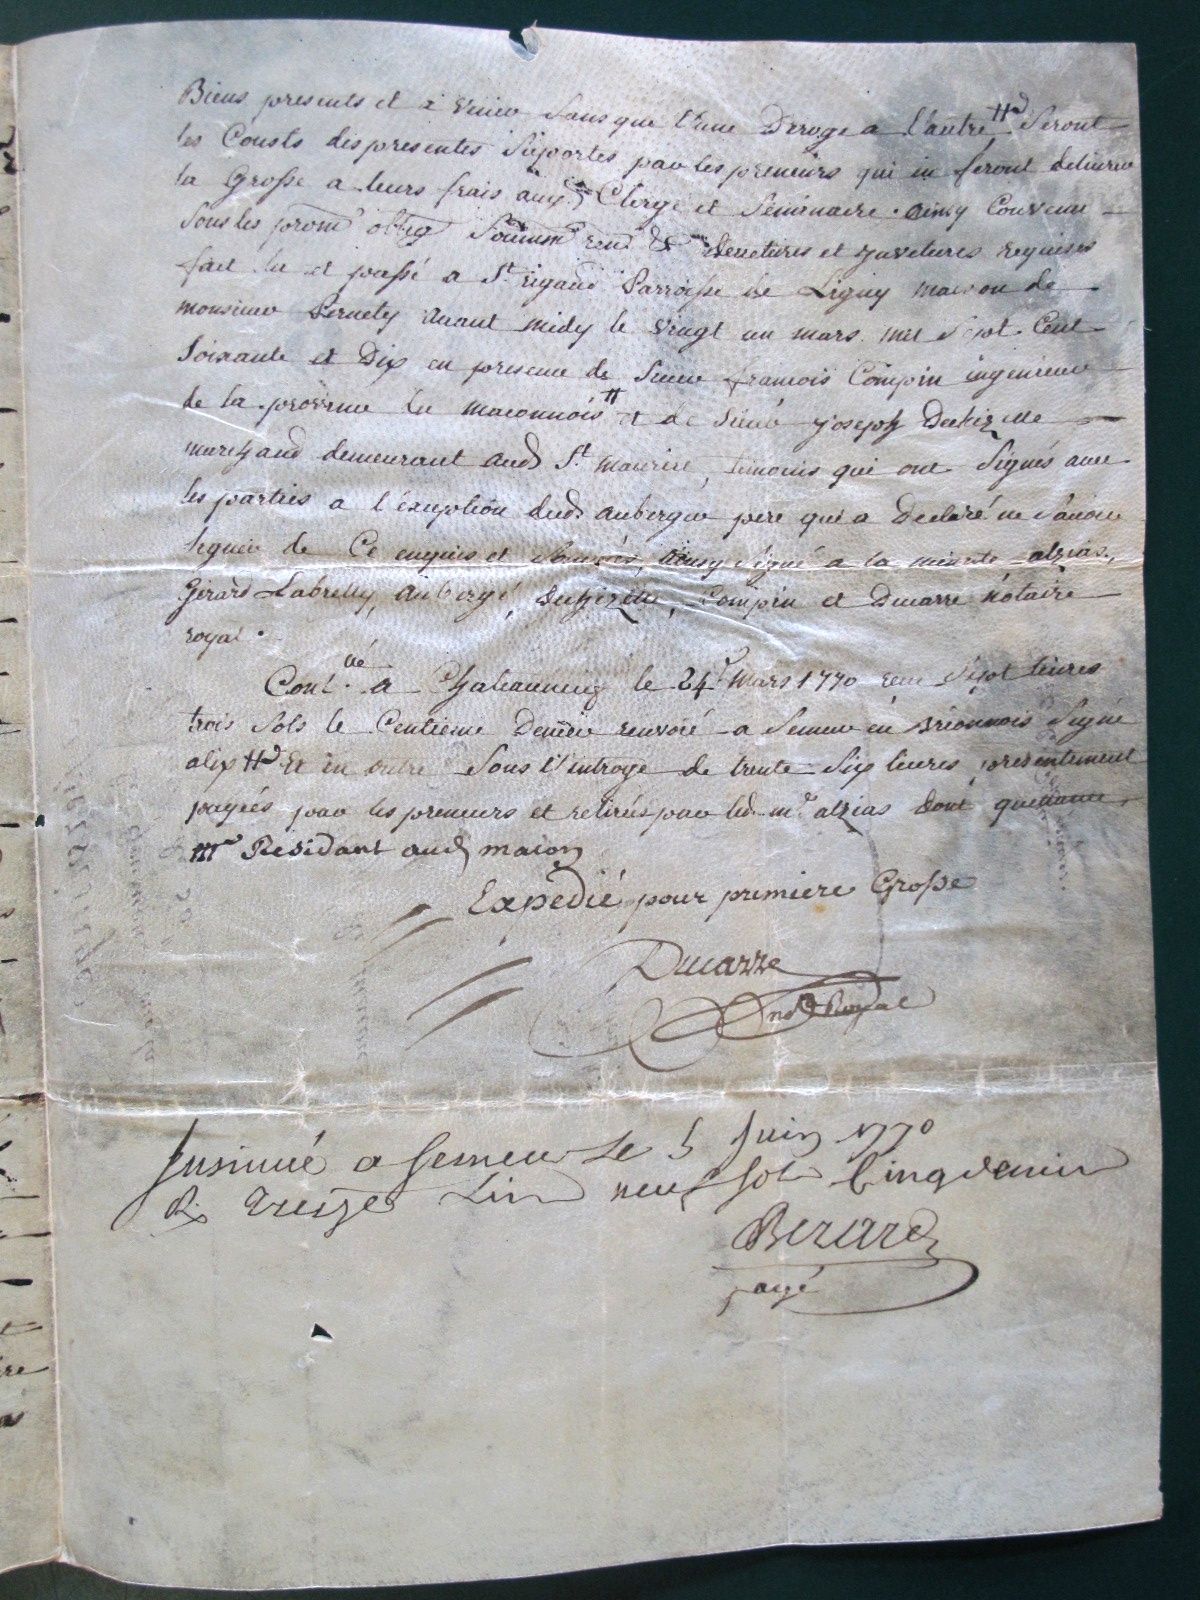 Biens presents et a venir sans que l'une Deroge a l'autre # Seront
les Cousts des presentes Suportes par les preneurs qui en feront delivrer
la Grosse a leurs frais auxd. Clergé et Seminaire. ainsy Convenu
Sous les prom. oblig. Soumm. ren. et et
fait lu et passé a St. rigaud Parroisse de Ligny maison de
monsieur Pernety avant midy le vingt un mars mil Sept Cent
Soixante et Dix en presence de Sieur francois Compin ingenieur
de la province du maconnois # et de Sieur joseph Dechizelle
marchand demeurant aud. St. maurice, temoins qui ont Signés avec
les parties a l'exception dud. aubergé pere qui a Declaré ne Savoir
Signer de Ce enquis et ainsy Signé a la minute alzias,
Gerard Labrelly, aubergé, Dechizelle, Compin et Ducarre Nôtaire
royal.
Conl.llé a Chateauneuf le 24e mars 1770 reçu Sept livres
trois Sols le Centieme Denier renvoié a Semur en Brionnois Signé
alix # Et en outre Sous l'introge de trente Six livres presentement
payées par les preneurs et retirées par led. mr. alzias dont quittance
# Résidant aud. macon
Expedié pour premiere Grosse
Ducarre
nre. Royal
Insinué a Semeur Le 5 Juin 1770
R. Treize Liv neuf sols Cinq denier
Berard
payé